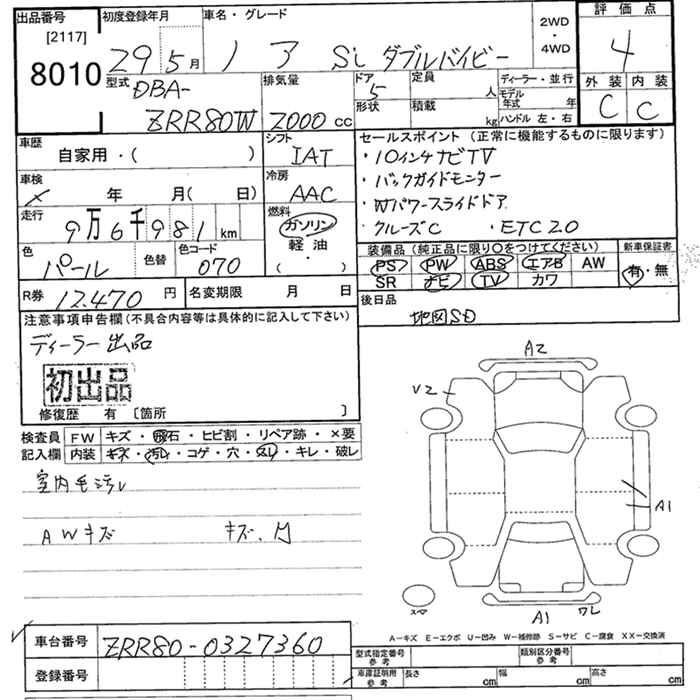 出品番号
[2117]
8010
初度登録年月
29 5月
車名・グレード
ノア Si ダブルバイビー
2WD
・
4WD
評価点
4
外装 内装
C C
型式
DBA-
ZRR80W
排気量
2000 cc
ドア
5
定員
人
形状
積載
kg
ディーラー・並行
モデル
年式 年
ハンドル 左・右
車歴
自家用・( )
シフト
IAT
車検
× 年 月( 日)
冷房
AAC
走行
9万6千981 km
燃料
ガソリン
軽油
( ・ )
色
パール
色替
色コード
070
R券 12,470 円
名変期限 月 日
セールスポイント (正常に機能するものに限ります)
・10インチナビTV
・バックガイドモニター
・Wパワースライドドア
・クルーズC ・ETC 2.0
装備品 (純正品に限り○をつけてください)
PS PW ABS エアB AW
SR ナビ TV カワ
新車保証書
有・無
後日品
地図SD
注意事項申告欄 (不具合内容等は具体的に記入して下さい)
ディーラー出品
初出品
修復歴 有 〔箇所 〕
検査員
記入欄
FW キズ・飛石・ヒビ割・リペア跡・×要
内装 キズ・汚レ・コゲ・穴・スレ・キレ・破レ
室内毛汚レ
AWキズ
A2
V2
A1
A1
ワレ
スマ
A－キズ E－エクボ U－凹み W－補修跡 S－サビ C－腐食 XX－交換済
車台番号 ZRR80-0327360
登録番号
型式指定番号
参考
類別区分番号
参考
車庫証明用
参考
長さ cm 幅 cm 高さ cm